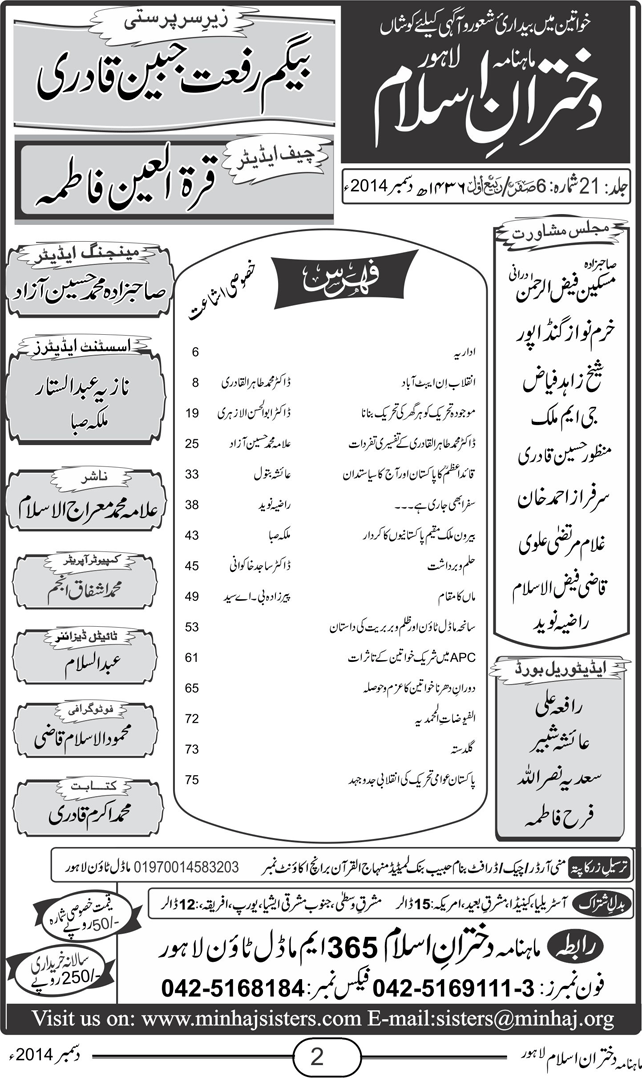 خواتین میں بیداریٔ شعور و آگہی کیلئے کوشاں
ماہنامہ لاہور
دخترانِ اسلام
جلد: 21 شمارہ: 6 صفر/ربیع اول ۱۴۳۶ھ دسمبر 2014ء
زیرِ سرپرستی
بیگم رفعت جبین قادری
چیف ایڈیٹر
قرۃ العین فاطمہ
مجلس مشاورت
صاحبزادہ مسکین فیض الرحمن درانی
خرم نواز گنڈاپور
شیخ زاہد فیاض
جی ایم ملک
منظور حسین قادری
سرفراز احمد خان
غلام مرتضیٰ علوی
قاضی فیض الاسلام
راضیہ نوید
ایڈیٹوریل بورڈ
رافعہ علی
عائشہ شبیر
سعدیہ نصراللہ
فرح فاطمہ
فہرس
خصوصی اشاعت
اداریہ 6
انقلاب اِن ایبٹ آباد ڈاکٹر محمد طاہرالقادری 8
موجودہ تحریک کو ہر گھر کی تحریک بنانا ڈاکٹر ابوالحسن الازہری 19
ڈاکٹر محمد طاہرالقادری کے تفسیری تفردات علامہ محمد حسین آزاد 25
قائداعظمؒ کا پاکستان اور آج کا سیاستدان عائشہ بتول 33
سفر ابھی جاری ہے۔۔۔ راضیہ نوید 38
بیرون ملک مقیم پاکستانیوں کا کردار ملکہ صبا 43
حلم و برداشت ڈاکٹر ساجد خاکوانی 45
ماں کا مقام پیرزادہ بی۔اے سید 49
سانحہ ماڈل ٹاؤن اور ظلم و بربریت کی داستان 53
APC میں شریک خواتین کے تاثرات 61
دورانِ دھرنا خواتین کا عزم و حوصلہ 65
الفیوضات المحمدیہ 72
گلدستہ 73
پاکستان عوامی تحریک کی انقلابی جدوجہد 75
مینجنگ ایڈیٹر
صاحبزادہ محمد حسین آزاد
اسسٹنٹ ایڈیٹرز
نازیہ عبدالستار
ملکہ صبا
ناشر
علامہ محمد معراج الاسلام
کمپیوٹر آپریٹر
محمد اشفاق انجم
ٹائیٹل ڈیزائنر
عبدالسلام
فوٹوگرافی
محمود الاسلام قاضی
کتابت
محمد اکرم قادری
ترسیل زر کا پتہ منی آرڈر/چیک/ڈرافٹ بنام حبیب بنک لمیٹیڈ منہاج القرآن برانچ اکاؤنٹ نمبر 01970014583203 ماڈل ٹاؤن لاہور
بدلِ اشتراک آسٹریلیا، کینیڈا، مشرق بعید، امریکہ: 15 ڈالر مشرق وسطیٰ، جنوب مشرقی ایشیا، یورپ، افریقہ: 12 ڈالر
قیمت خصوصی شمارہ
50/- روپے
سالانہ خریداری
250/- روپے
رابطہ ماہنامہ دخترانِ اسلام 365 ایم ماڈل ٹاؤن لاہور
فون نمبرز: 042-5169111-3 فیکس نمبر: 042-5168184
Visit us on: www.minhajsisters.com E-mail:sisters@minhaj.org
ماہنامہ دخترانِ اسلام لاہور 2 دسمبر 2014ء